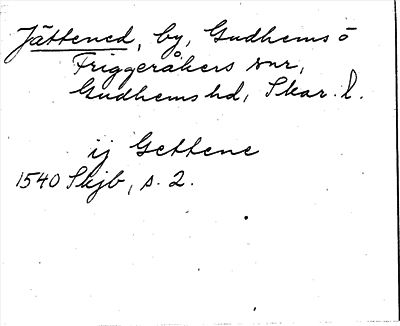 Jättened, by, Gudhems o
Friggeråkers snr,
Gudhems hd, Skar. l.
ij Gettene
1540 Skjb, s. 2.